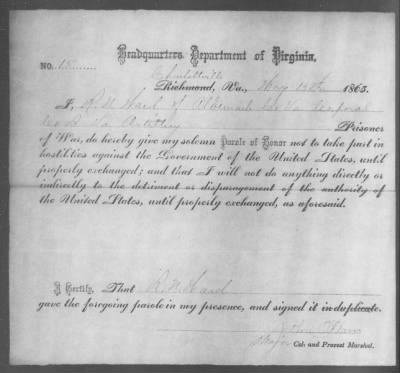 Headquarters Department of Virginia,
No. 15
Charlottesville
Richmond, Va., May 1865.
I, R. N. of Albemarle Co Va Corporal
Co Va Artillery Prisoner
of War, do hereby give my solemn Parole of Honor not to take part in
hostilities against the Government of the United States, until
properly exchanged; and that I will not do anything directly or
indirectly to the detriment or disparagement of the authority of
the United States, until properly exchanged, as aforesaid.
I Certify, That R. N.
gave the foregoing parole in my presence, and signed it in duplicate.
John
Major
Col. and Provost Marshal.